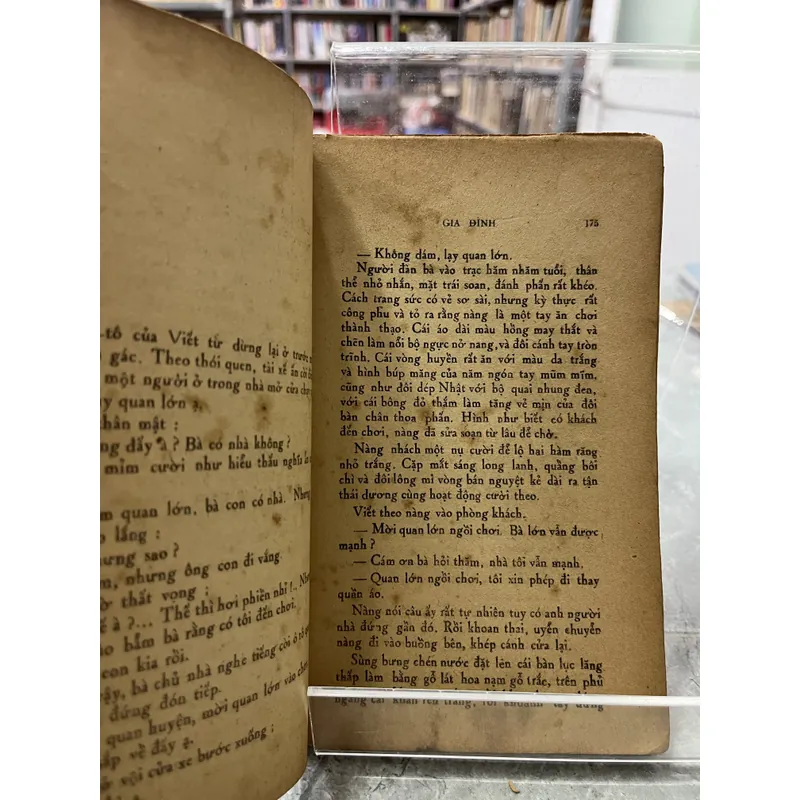 -tô của Viết từ dừng lại ở trước
gác. Theo thói quen, tài xế ấn còi
một người ở trong nhà mở cửa
quan lớn ạ.
thân mật :
đấy à ? Bà có nhà không ?
mỉm cười như hiểu thấu nghĩa
quan lớn, bà con có nhà. Nhưng
lắng :
nhưng sao ?
nhưng ông con đi vắng.
thất vọng :
à ?... Thế thì hơi phiền nhỉ !..
bẩm bà rằng có tôi đến chơi.
con kia rồi.
vậy, bà chủ nhà nghe tiếng còi ô tô
đứng đón tiếp.
quan huyện, mời quan lớn vào chơi
về đấy ạ.
vội cửa xe bước xuống :
GIA ĐÌNH 175
— Không dám, lạy quan lớn.
Người đàn bà vào trạc hăm nhăm tuổi, thân
thể nhỏ nhắn, mặt trái soan, đánh phấn rất khéo.
Cách trang sức có vẻ sơ sài, nhưng kỳ thực rất
công phu và tỏ ra rằng nàng là một tay ăn chơi
thành thạo. Cái áo dài màu hồng may thắt và
chẽn làm nổi bộ ngực nở nang, và đôi cánh tay tròn
trĩnh. Cái vòng huyền rất ăn với màu da trắng
và hình búp măng của năm ngón tay mũm mĩm,
cũng như đôi dép Nhật với bộ quai nhung đen,
với cái bông đỏ thắm làm tăng vẻ mịn của đôi
bàn chân thoa phấn. Hình như biết có khách
đến chơi, nàng đã sửa soạn từ lâu để chờ.
Nàng nhách một nụ cười để lộ hai hàm răng
nhỏ trắng. Cặp mắt sáng long lanh, quầng bôi
chì và đôi lông mi vòng bán nguyệt kẻ dài ra tận
thái dương cùng hoạt động cười theo.
Viết theo nàng vào phòng khách.
— Mời quan lớn ngồi chơi. Bà lớn vẫn được
mạnh ?
— Cám ơn bà hỏi thăm, nhà tôi vẫn mạnh.
— Quan lớn ngồi chơi, tôi xin phép đi thay
quần áo.
Nàng nói câu ấy rất tự nhiên tuy có anh người
nhà đứng gần đó. Rồi khoan thai, uyển chuyển
nàng đi vào buồng bên, khép cánh cửa lại.
Sùng bưng chén nước đặt lên cái bàn lục lăng
thấp làm bằng gỗ lát hoa nạm gỗ trắc, trên phủ
ngang cái khăn ren trắng, rồi khoanh tay đứng